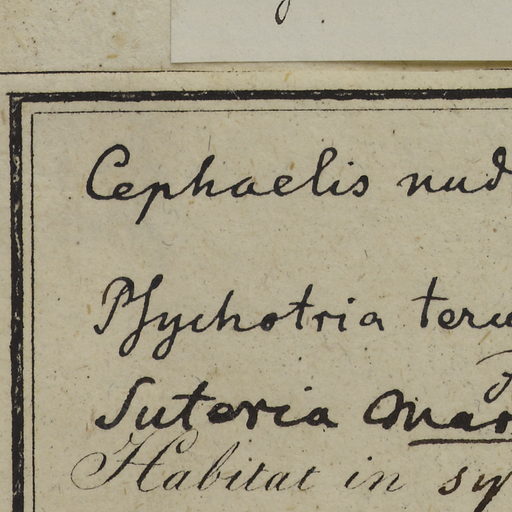 Cephaelis nud
Psychotria teru
Suteria mar
Habitat in sy